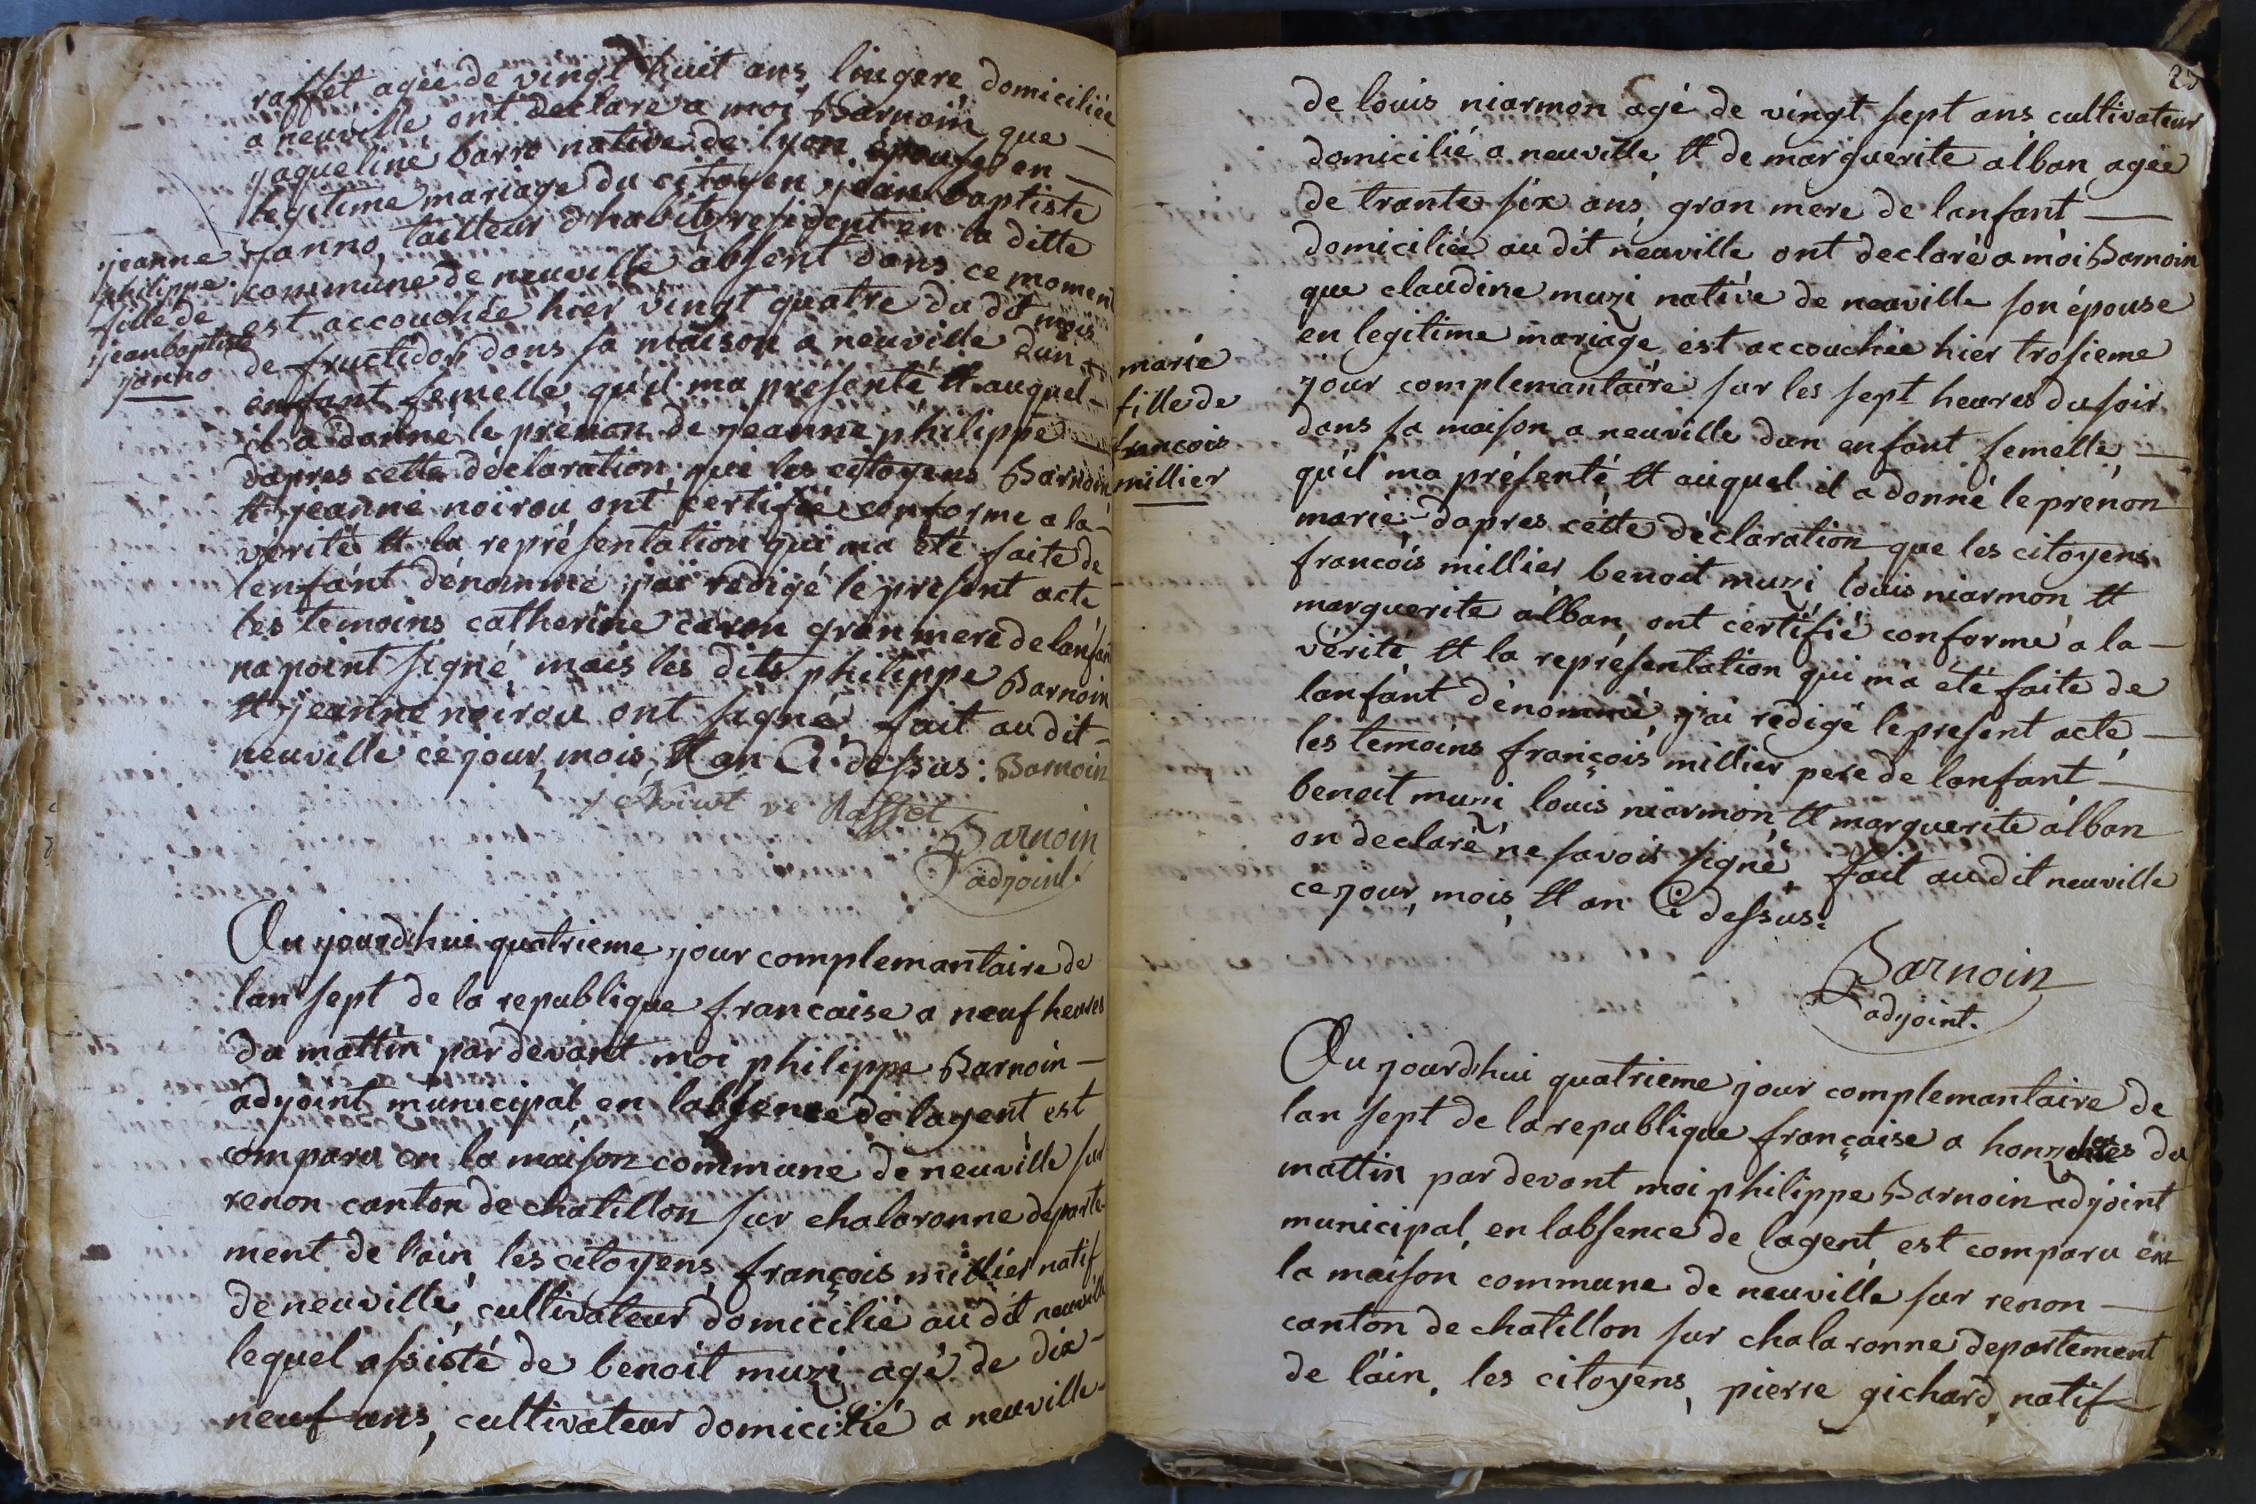 raffet agée de vingt huit ans lingere domiciliée
a neuville ont declaré a moi Barnoin que —
jaqueline barre native de lyon épouse en —
legitime mariage du citoyen jean baptiste
janno, tailleur d'habits resident en la ditte
commune de neuville absent dans ce moment
est accouchée hier vingt quatre du dit mois
de fructidor dans sa maison a neuville dun
enfant femelle qu'il ma présenté tt auquel —
il a donné le prénon de jeanne philippe —
dapres cette déclaration que les citoyens Barnoin
tt jeanne noirou ont certifié conforme a la —
verité tt la représentation qui ma été faite de
lenfant dénommé j'ai redigé le présent acte
les temoins catherine caron gran mere de lanfant
na point signé, mais les dits philippe Barnoin
tt jeanne noirou ont signé, fait au dit —
neuville ce jour, mois, tt an Ci dessus: Barnoin
jeanne
philippe
fille de
jean baptiste
janno
ve Raffet
Barnoin
adjoint.
Au jourd'hui quatrieme jour complemantaire de
lan sept de la republique francaise a neuf heures
du mattin par devant moi philippe Barnoin —
adjoint municipal en labsence de lagent est
comparu en la maison commune de neuville sur
renon canton de chatillon sur chalaronne departe-
ment de l'ain, les citoyens françois millier natif
de neuville, cultivateur domicilié au dit neuville
lequel assisté de benoit muzi agé de dix —
neuf ans, cultivateur domicilié a neuville —
23
de louis niarmon agé de vingt sept ans cultivateur
domicilié a neuville, tt de marguerite alban agée
de trante six ans, gran mere de lanfant —
domiciliée au dit neuville ont declaré a moi Barnoin
que claudine muzi native de neuville son épouse
en legitime mariage est accouchée hier trosieme
jour complemantaire sur les sept heures du soir
dans sa maison a neuville dun enfant femelle —
qu'il ma présenté tt auquel il a donné le prenon
marie dapres cette déclaration que les citoyens
francois millier, benoit muzi louis niarmon tt
marguerite alban, ont certifié conforme a la —
vérité tt la représentation qui ma eté faite de
lanfant dénommé, j'ai redigé le present acte, —
les temoins françois millier pere de lanfant —
benoit muzi, louis niarmon tt marguerite alban
on declaré ne savoir signé, fait au dit neuville
ce jour, mois, tt an Ci dessus:
marie
fille de
francois
millier
Barnoin
adjoint.
Au jourd'hui quatrieme jour complemantaire de
lan sept de la republique française a honze hres du
mattin par devant moi philippe Barnoin adjoint
municipal, en labsence de lagent, est comparu en
la maison commune de neuville sur renon —
canton de chatillon sur chalaronne departement
de l'ain, les citoyens, pierre gichard, natif —